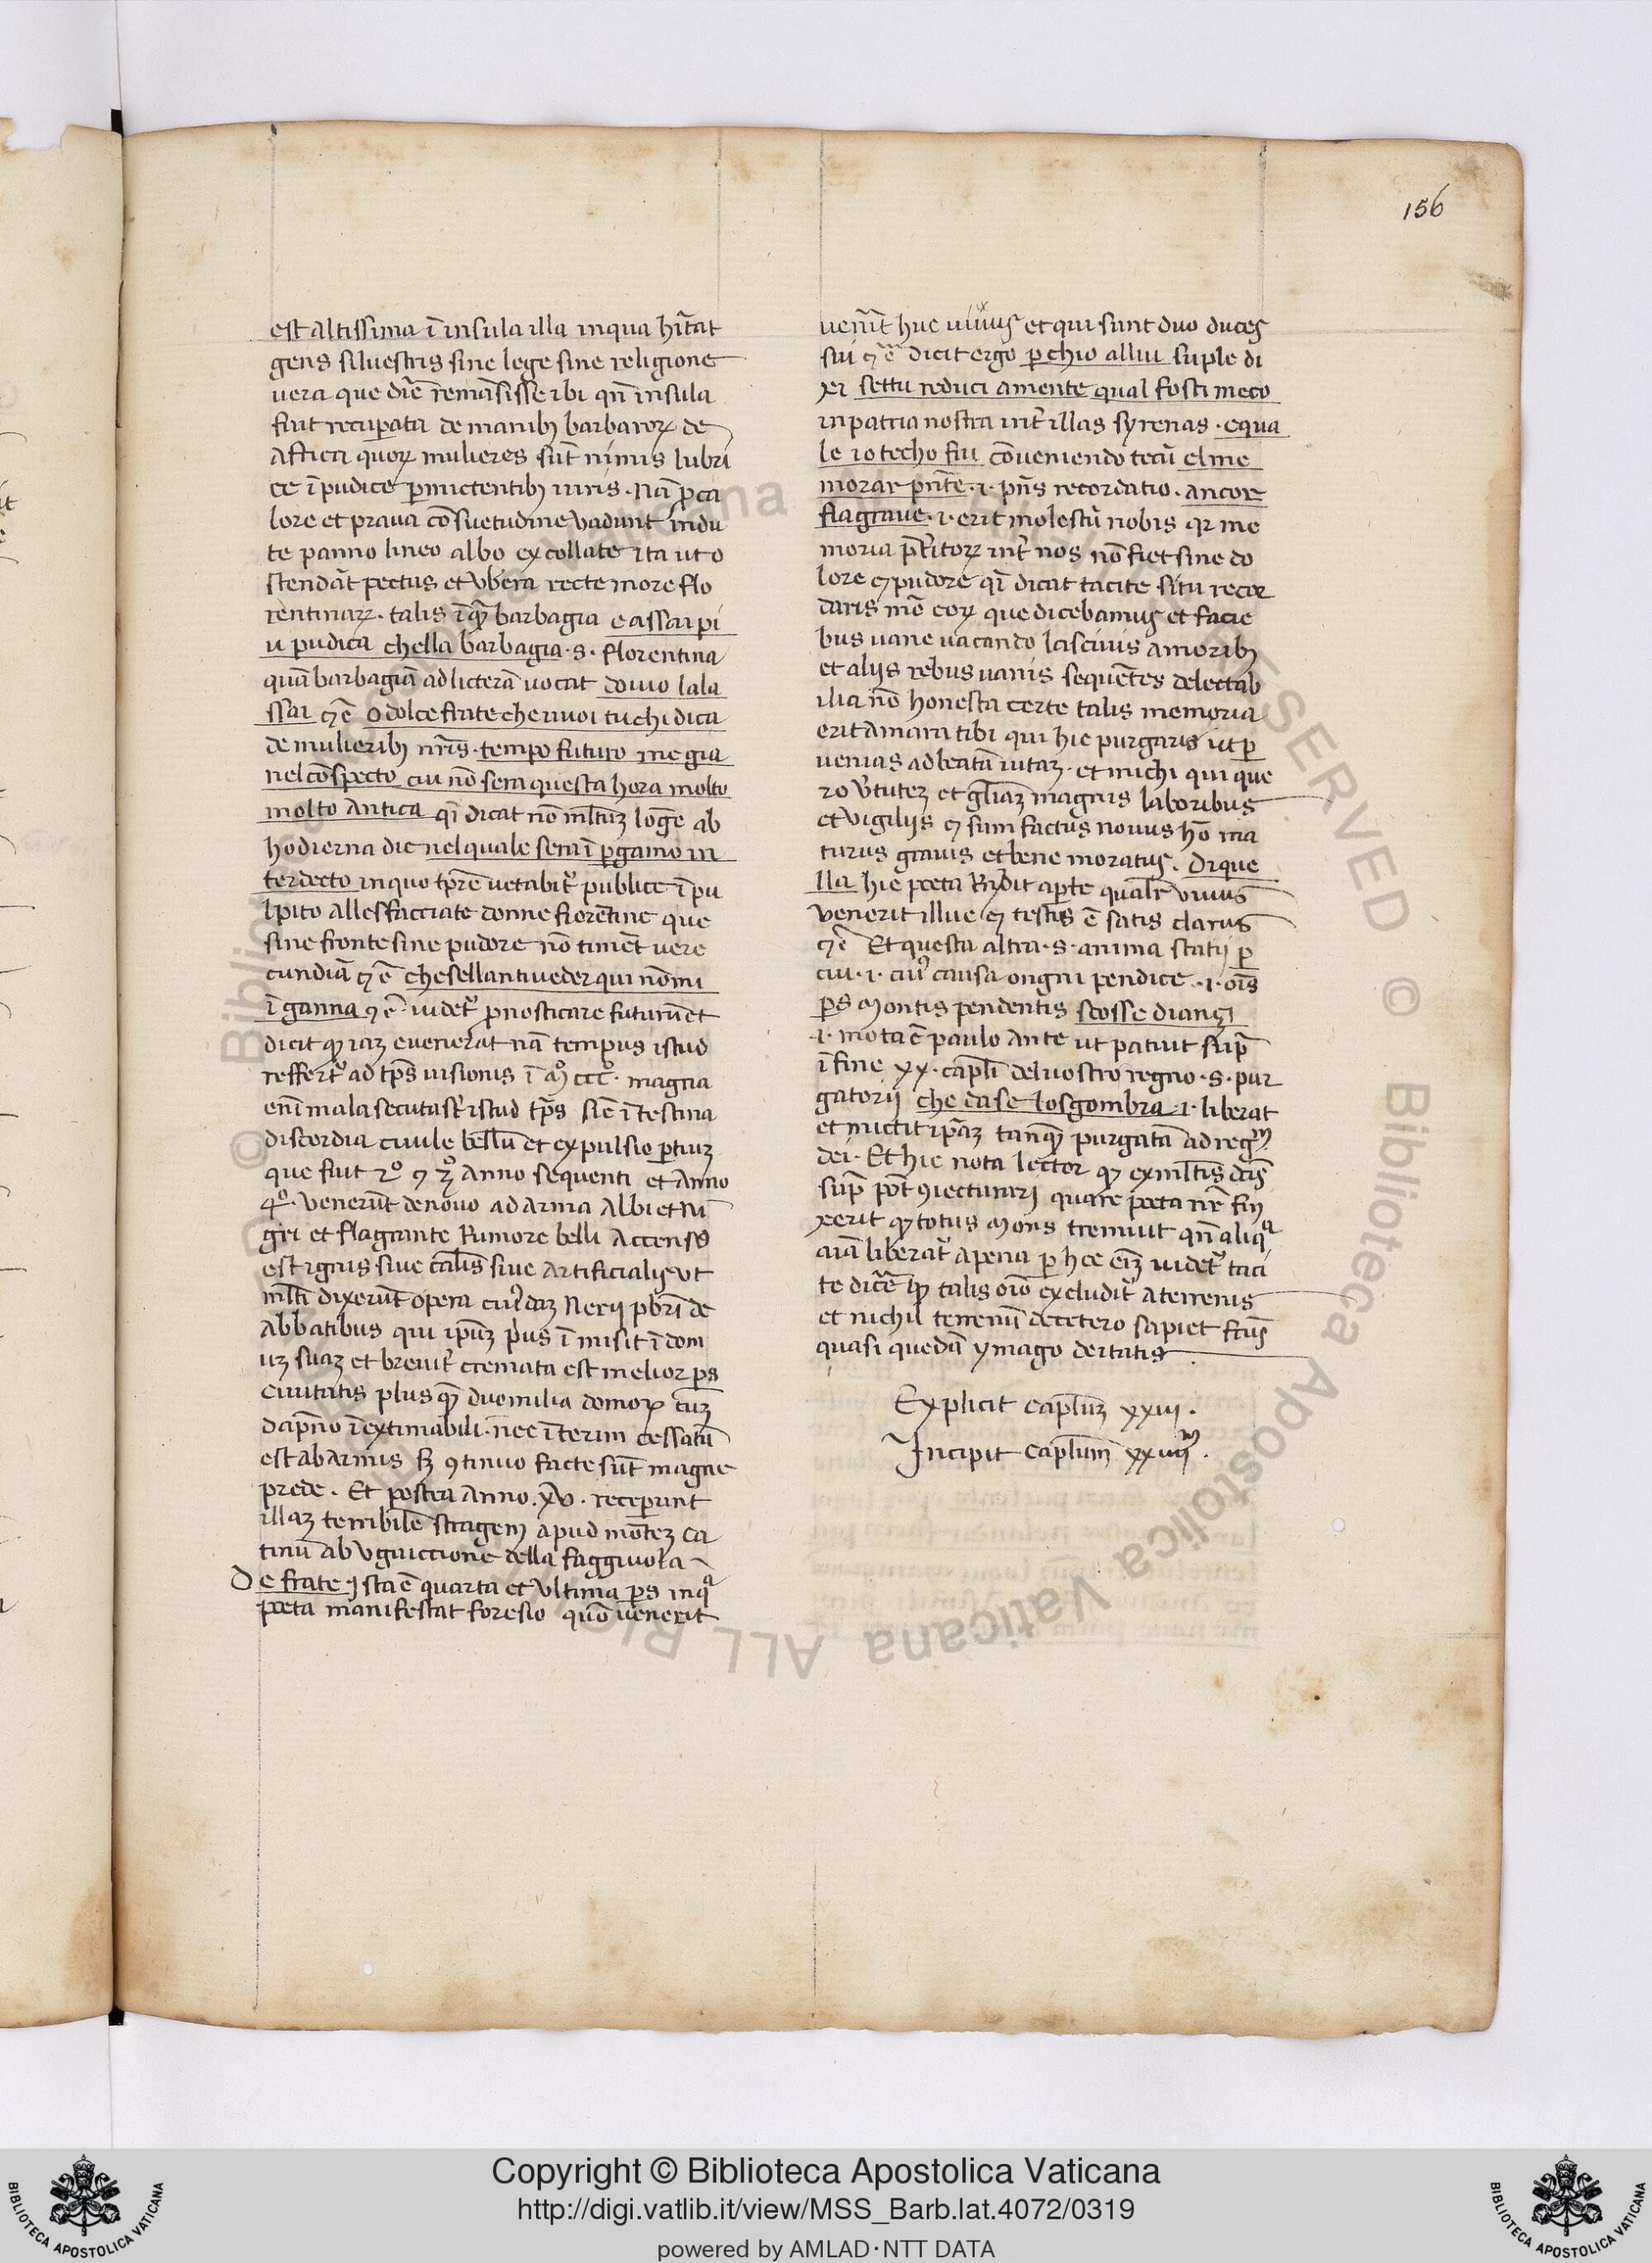 156
est altissima ī insula illa inqua hītat
gens siluestris sine lege sine religione
uera que dr̄e remāsisse ibi qn̄ insula
fuit recuperata de manibꝫ barbaroꝝ de
affrica quoꝝ mulieres sūt nimis lubri
ce īpudice permictentibꝫ uiris. Nā ꝓ ca
lore et praua cōsuetudine vadunt indu
te panno lineo albo excollate ita ut o
stendāt pectus et vbera recte more flo
rentinaꝝ. talis īqꝫ barbagia e assai pi
u pudica chella barbagia .s. florentina
quā barbagiā ad licterā uocat douio lala
ssai ꝯē o dolce frate che uuoi tu chi dica
de mulieribꝫ nr̄is. tempo futuro me gia
nel cōspecto cui nō sera questa hora molto
molto antica qī dicat nō ml̄tuꝫ lōge ab
hodierna die nel quale sera ī ꝑgamo in
terdecto in quo tp̄re uetabit̉ publice ī pu
lpito alle sfacciate donne fiorētine que
sine fronte sine pudore nō timēt uere
cundiā ꝯē che sellantiueder qui nōmi
ī ganna ꝯē. uidet̉ pronosticare futurū et
dicit ꝙ iaꝫ euenerat nā tempus istud
reffert̉ ad tp̄s uisionis ī Mº cccº. magna
enī mala secuta st̄ istud tp̄s sic̄ ītestina
discordia ciuile bellū et expulsio ꝑtiuꝫ
que fuit 2º ꝯ 3º anno sequenti et anno
4º. venerūt denouo ad arma albi et ni
gri et flagrante rumore belli accensꝰ
est ignis siue cāl̄is siue artificialis vt
ml̄ti dixerūt opera cuiꝰdaꝫ Nerij pbr̄i de
Abbatibus qui ip̄uꝫ pius īmisit ī dom
uꝫ suaꝫ et breuit̉ cremata est melior ps
ciuitatis plus qꝫ duomilia domoꝝ cuꝫ
dapno īextimabili. nec īterim cessatū
est ab armis sꝫ ꝯtinuo facte sūt magne
prede. Et postea anno .xv. receperunt
illaꝫ terribilē stragem apud mōteꝫ ca
tinū ab Vguiccione della faggiuola
De frate Ista ē quarta et vltima ps in qᵃ
poeta manifestat foresio quō uenerit
uenīt huc uiuus et qui sunt duo duces
sui ꝯē dicit ergo perchio allui suple di
xi settu reduci amente qual fosti meco
in patria nostra int̉ illas syrenas. e qua
le io techo fui cōueniendo tecū el me
morar pn̄te .i. pn̄s recordatio. ancor
fia graue .i. erit molestū nobis qr me
moria pt̄itoꝝ int̉ nos nō fiet sine do
lore ꝯ pudore qī dicat tacite si tu recor
daris mō eoꝝ que dicebamus et facie
bus uane uacando lasciuis amoribꝫ
et alijs rebus uanis sequētes delectab
ilia nō honesta certe talis memoria
erit amara tibi qui hic purgaris ut per
uenias ad beatā uitaꝫ. et michi qui que
ro v̉tuteꝫ et gl̄iaꝫ magnis laboribus
et vigilijs ꝯ sum factus nouus hō ma
turus grauis et bene moratus. Di que
lla hic poeta Rn̄dit aperte qualr̄ viuus
venerit illuc ꝯ textus ē satis clarus
ꝯē Et questa altra .s. anima statij per
cui .i. cuiꝰ causa ongni pendice .i. oīs
ps montis pendentis scosse dianzi
.i. mota ē paulo ante ut patuit supra
ī fine xx. capli del uostro regno .s. pur
gatorij che da se losgombra .i. liberat
et mictit ip̄aꝫ tanqꝫ purgatā ad regᵐ
dei. Et hic nota lector ꝙ ex ml̄tis dc̄is
supra pōt ꝯiecturari quare poeta nr̄ fin
xerit ꝙ totus mons tremuit qn̄ aliqᵃ
aīa liberat̉ apena per hec eīꝫ uidet̉ taci
te dicē ꝙ talis oīo excludit̉ a terrenis
et nichil terrenū decetero sapiet fc̄us
quasi quedā ymago deitatis
Explicit capl̄uꝫ xxiij.
Incipit capl̄um xxiiijᵐ.
Copyright © Biblioteca Apostolica Vaticana
http://digi.vatlib.it/view/MSS_Barb.lat.4072/0319
powered by AMLAD·NTT DATA
BIBLIOTECA APOSTOLICA VATICANA
BIBLIOTECA APOSTOLICA VATICANA